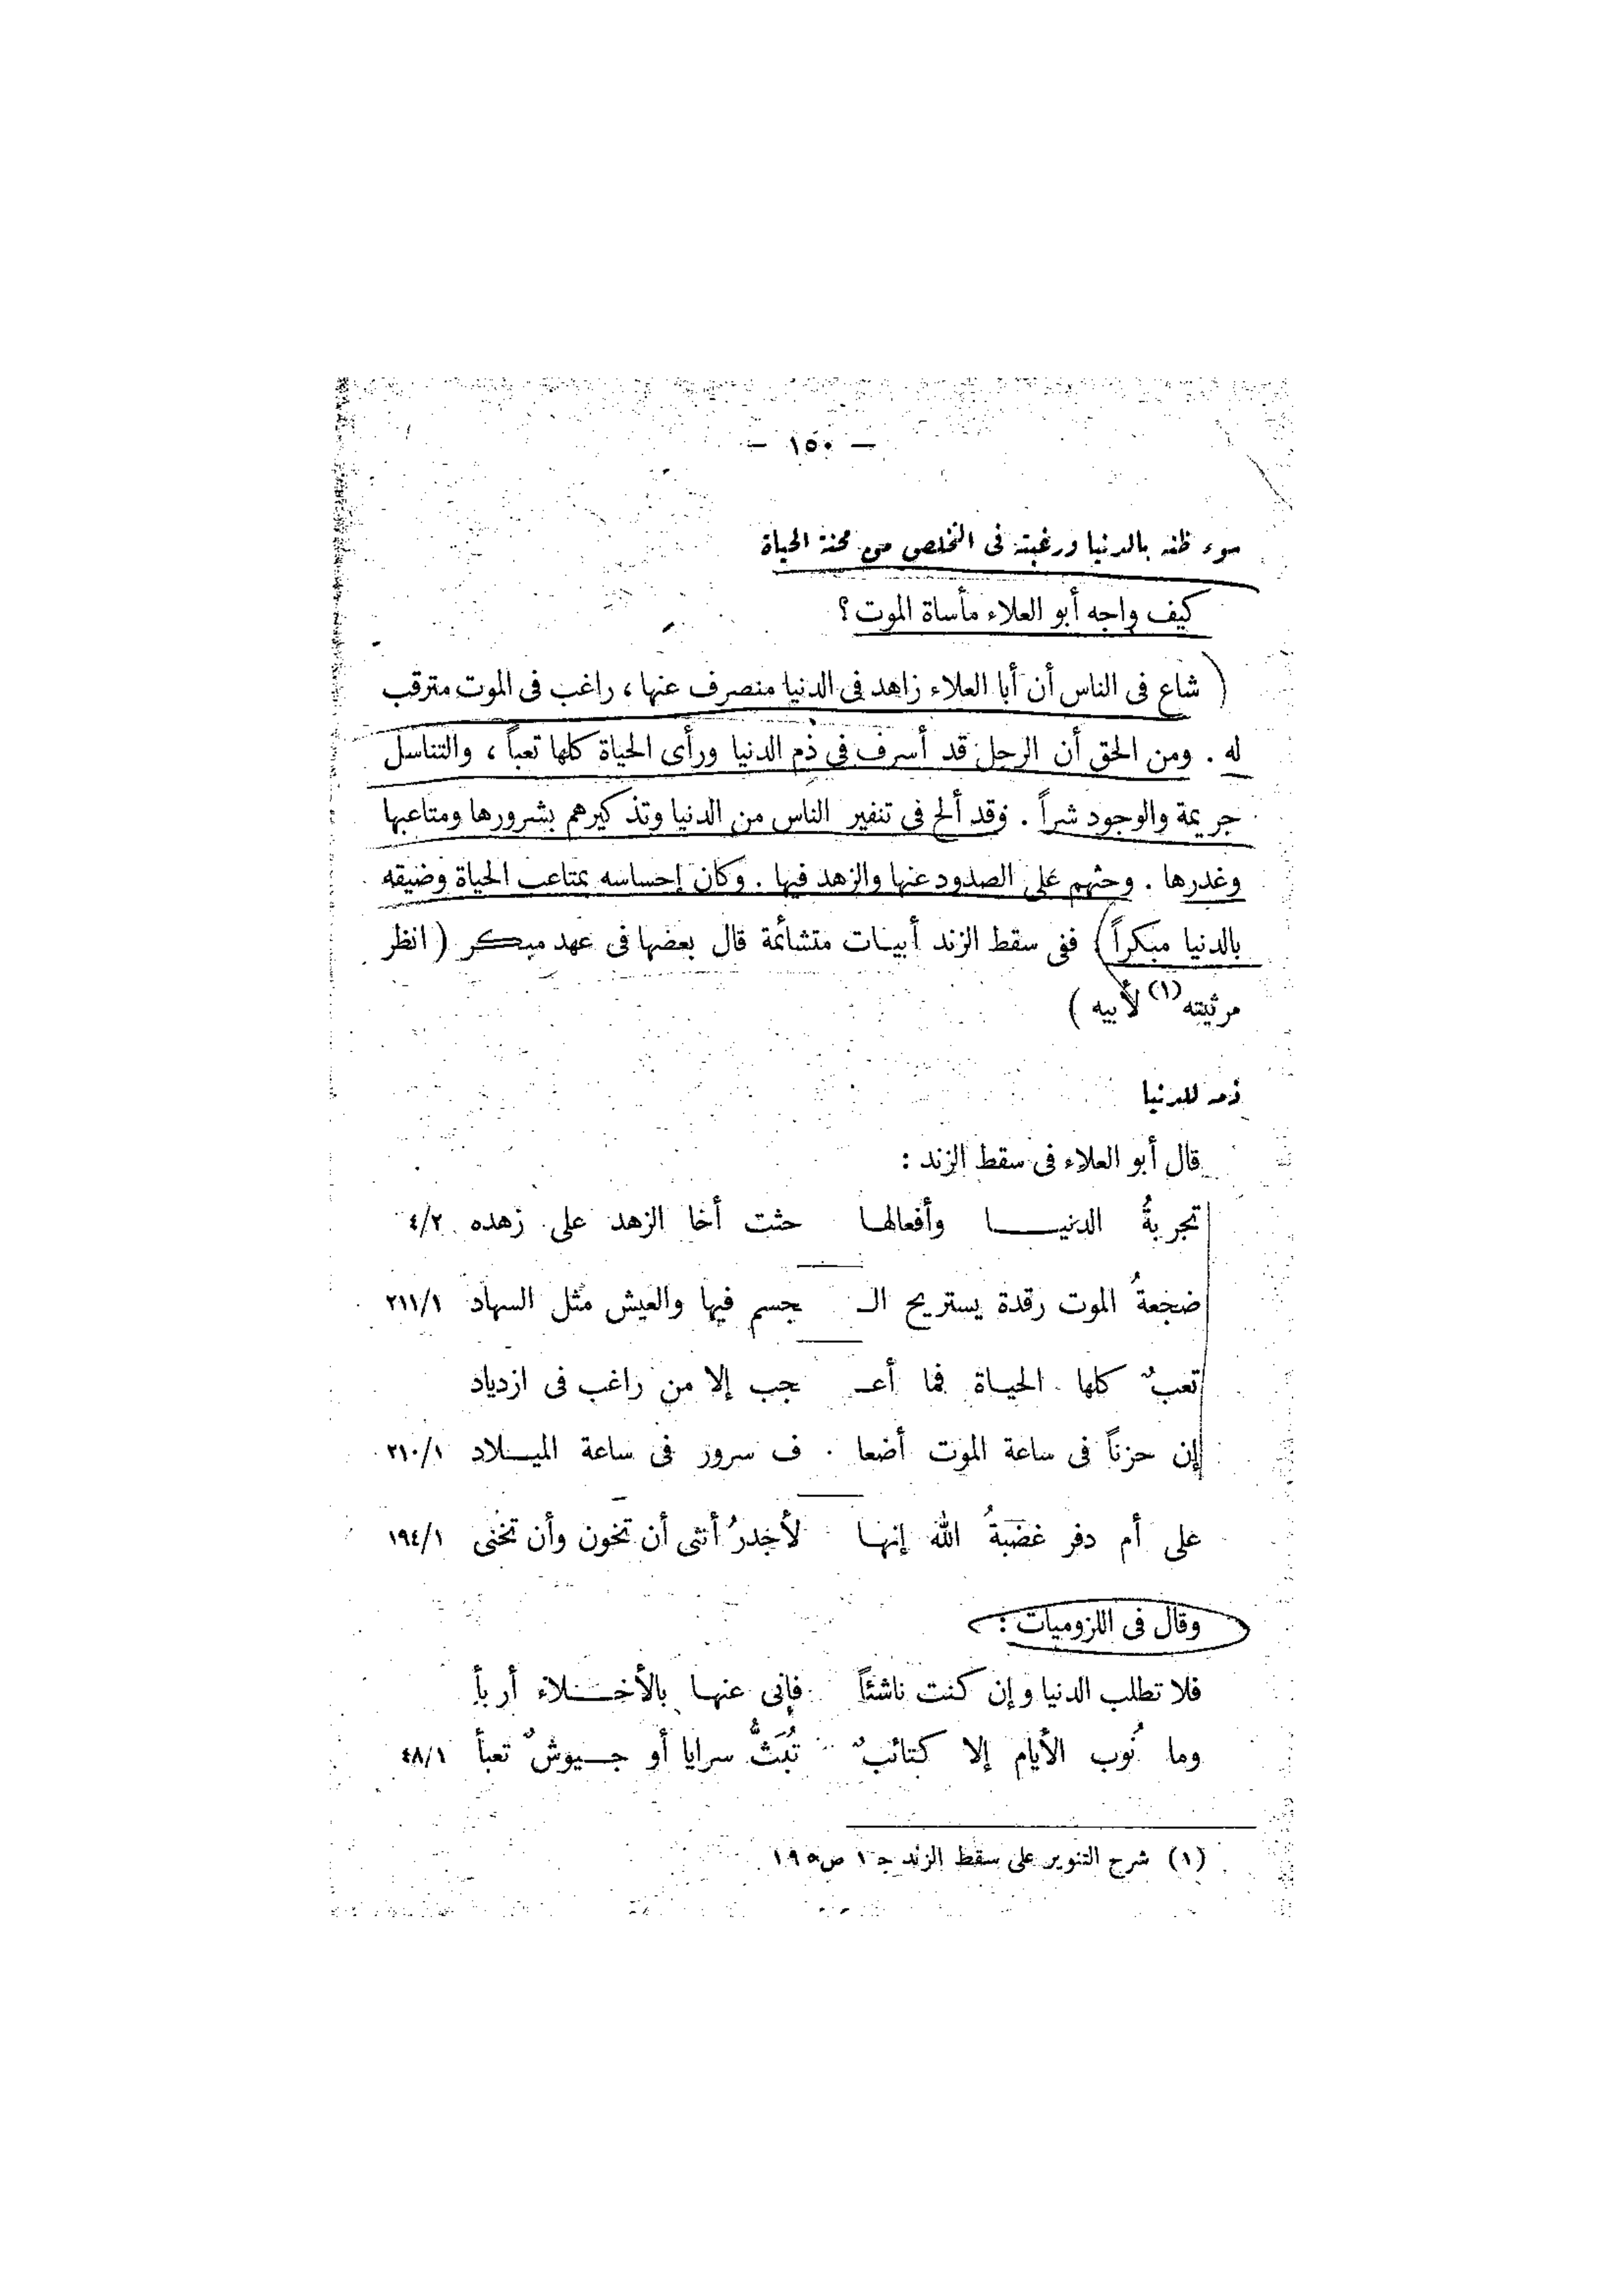 — ١٥٠ —
سوء ظنه بالدنيا ورغبته فى التخلص من محنة الحياة
كيف واجه أبو العلاء مأساة الموت؟
( شاع فى الناس أن أبا العلاء زاهد فى الدنيا منصرف عنها ، راغب فى الموت مترقب
له . ومن الحق أن الرجل قد أسرف فى ذم الدنيا ورأى الحياة كلها تعباً ، والتناسل
جريمة والوجود شراً . وقد ألح فى تنفير الناس من الدنيا وتذكيرهم بشرورها ومتاعبها
وغدرها . وحثهم على الصدود عنها والزهد فيها . وكان إحساسه بمتاعب الحياة وضيقه
بالدنيا مبكراً ) ففى سقط الزند أبيات متشائمة قال بعضها فى عهد مبكر ( انظر
مرثيته(١) لأبيه )
ذمه للدنيا
قال أبو العلاء فى سقط الزند :
تجربةُ الدنيــا وأفعالها حثت أخا الزهد على زهده ٤/٢
ضجعةُ الموت رقدة يستريح الـ جسم فيها والعيش مثل السهاد ٢١١/١
تعبٌ كلها الحياة فما أعـ جب إلا من راغب فى ازدياد
إن حزناً فى ساعة الموت أضعا ف سرور فى ساعة الميــلاد ٢١٠/١
على أم دفر غضبةُ الله إنها لأجدرُ أنثى أن تخون وأن تخنى ١٩٤/١
وقال فى اللزوميات :
فلا تطلب الدنيا وإن كنت ناشئاً فإنى عنها بالأخــلاء أربأ
وما نُوب الأيام إلا كتائبٌ تُبَثُّ سرايا أو جــيوشٌ تعبأ ٤٨/١
(١) شرح التنوير على سقط الزند جـ ١ ص ١٩٥